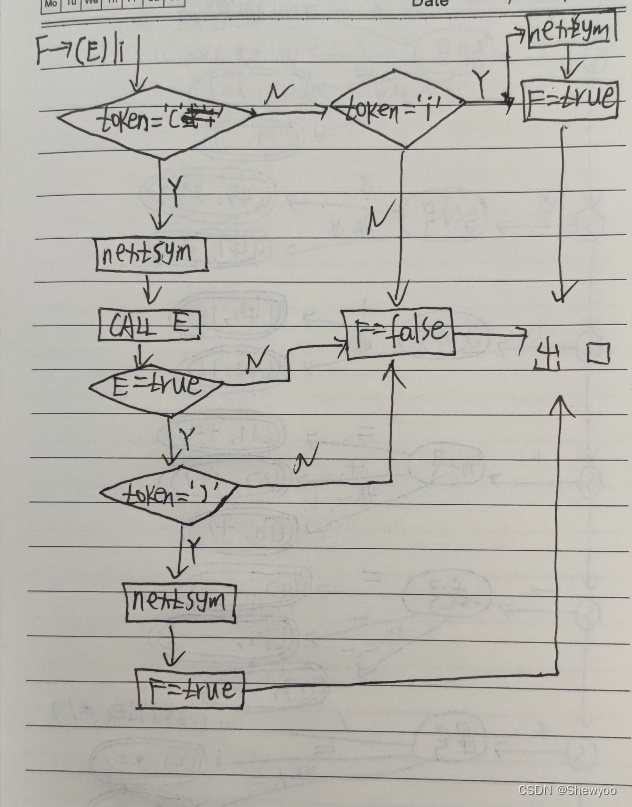 Mo Tu We Th Fr Sa Su
Date
F→(E)|i
nextsym
token='('
N
token='i'
Y
F=true
Y
N
nextsym
CALL E
F=false
出口
E=true
N
Y
token=')'
N
Y
nextsym
F=true
CSDN @Shewyoo